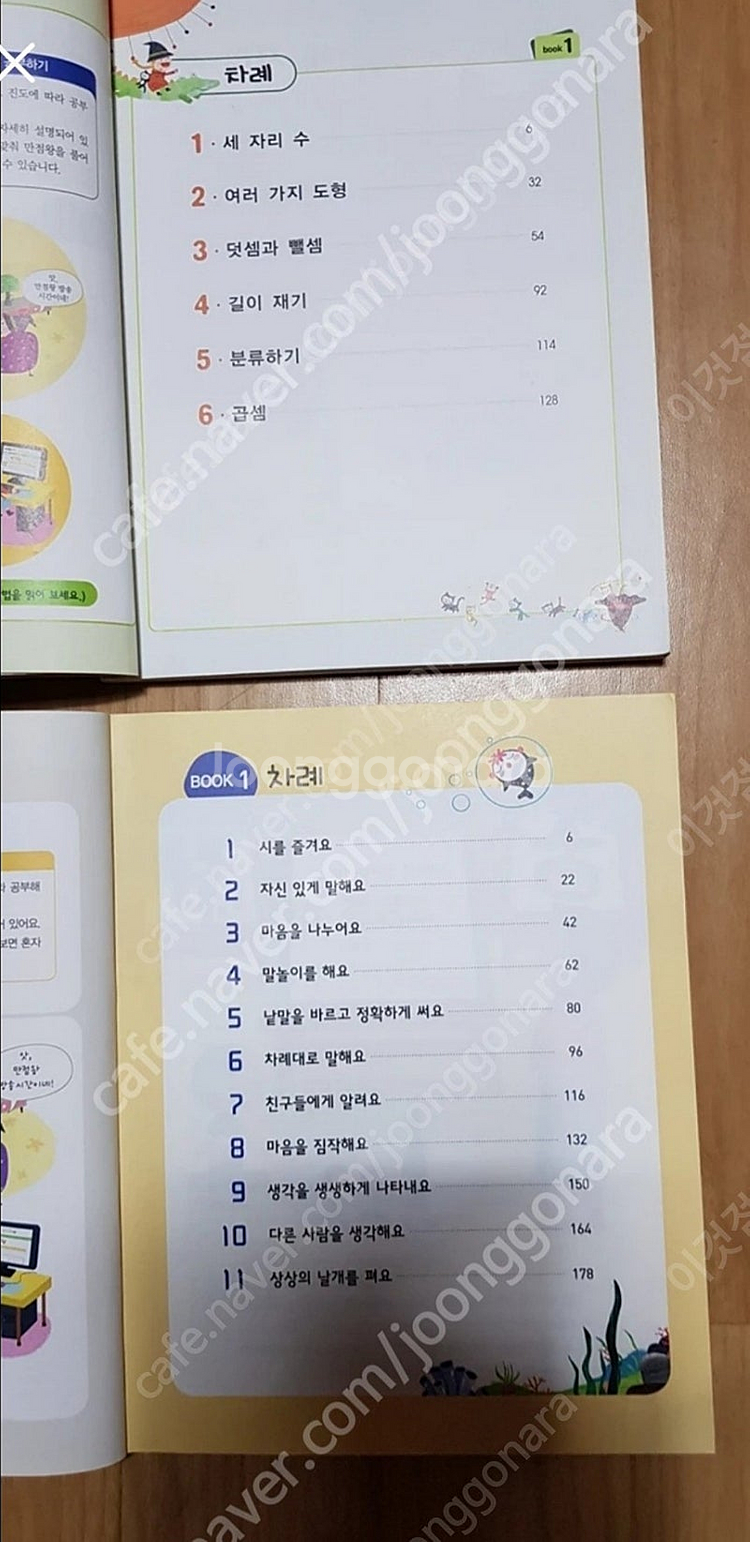 진도에 따라 공부
자세히 설명되어 있
맞춰 만점왕을 풀어
수 있습니다.
앗,
만점왕 방송
시간이네!
법을 읽어 보세요.)
차례
book 1
1 · 세 자리 수 6
2 · 여러 가지 도형 32
3 · 덧셈과 뺄셈 54
4 · 길이 재기 92
5 · 분류하기 114
6 · 곱셈 128
공부해
어 있어요.
보면 혼자
앗,
만점왕
방송시간이네!
BOOK 1 차례
1 시를 즐겨요 6
2 자신 있게 말해요 22
3 마음을 나누어요 42
4 말놀이를 해요 62
5 낱말을 바르고 정확하게 써요 80
6 차례대로 말해요 96
7 친구들에게 알려요 116
8 마음을 짐작해요 132
9 생각을 생생하게 나타내요 150
10 다른 사람을 생각해요 164
11 상상의 날개를 펴요 178
cafe.naver.com/joonggonara
cafe.naver.com/joonggonara
cafe.naver.com/joonggonara
cafe.naver.com/joonggonara
naver.com/joonggonara
joonggonara
joonggonara
이것저
이것저
이것저